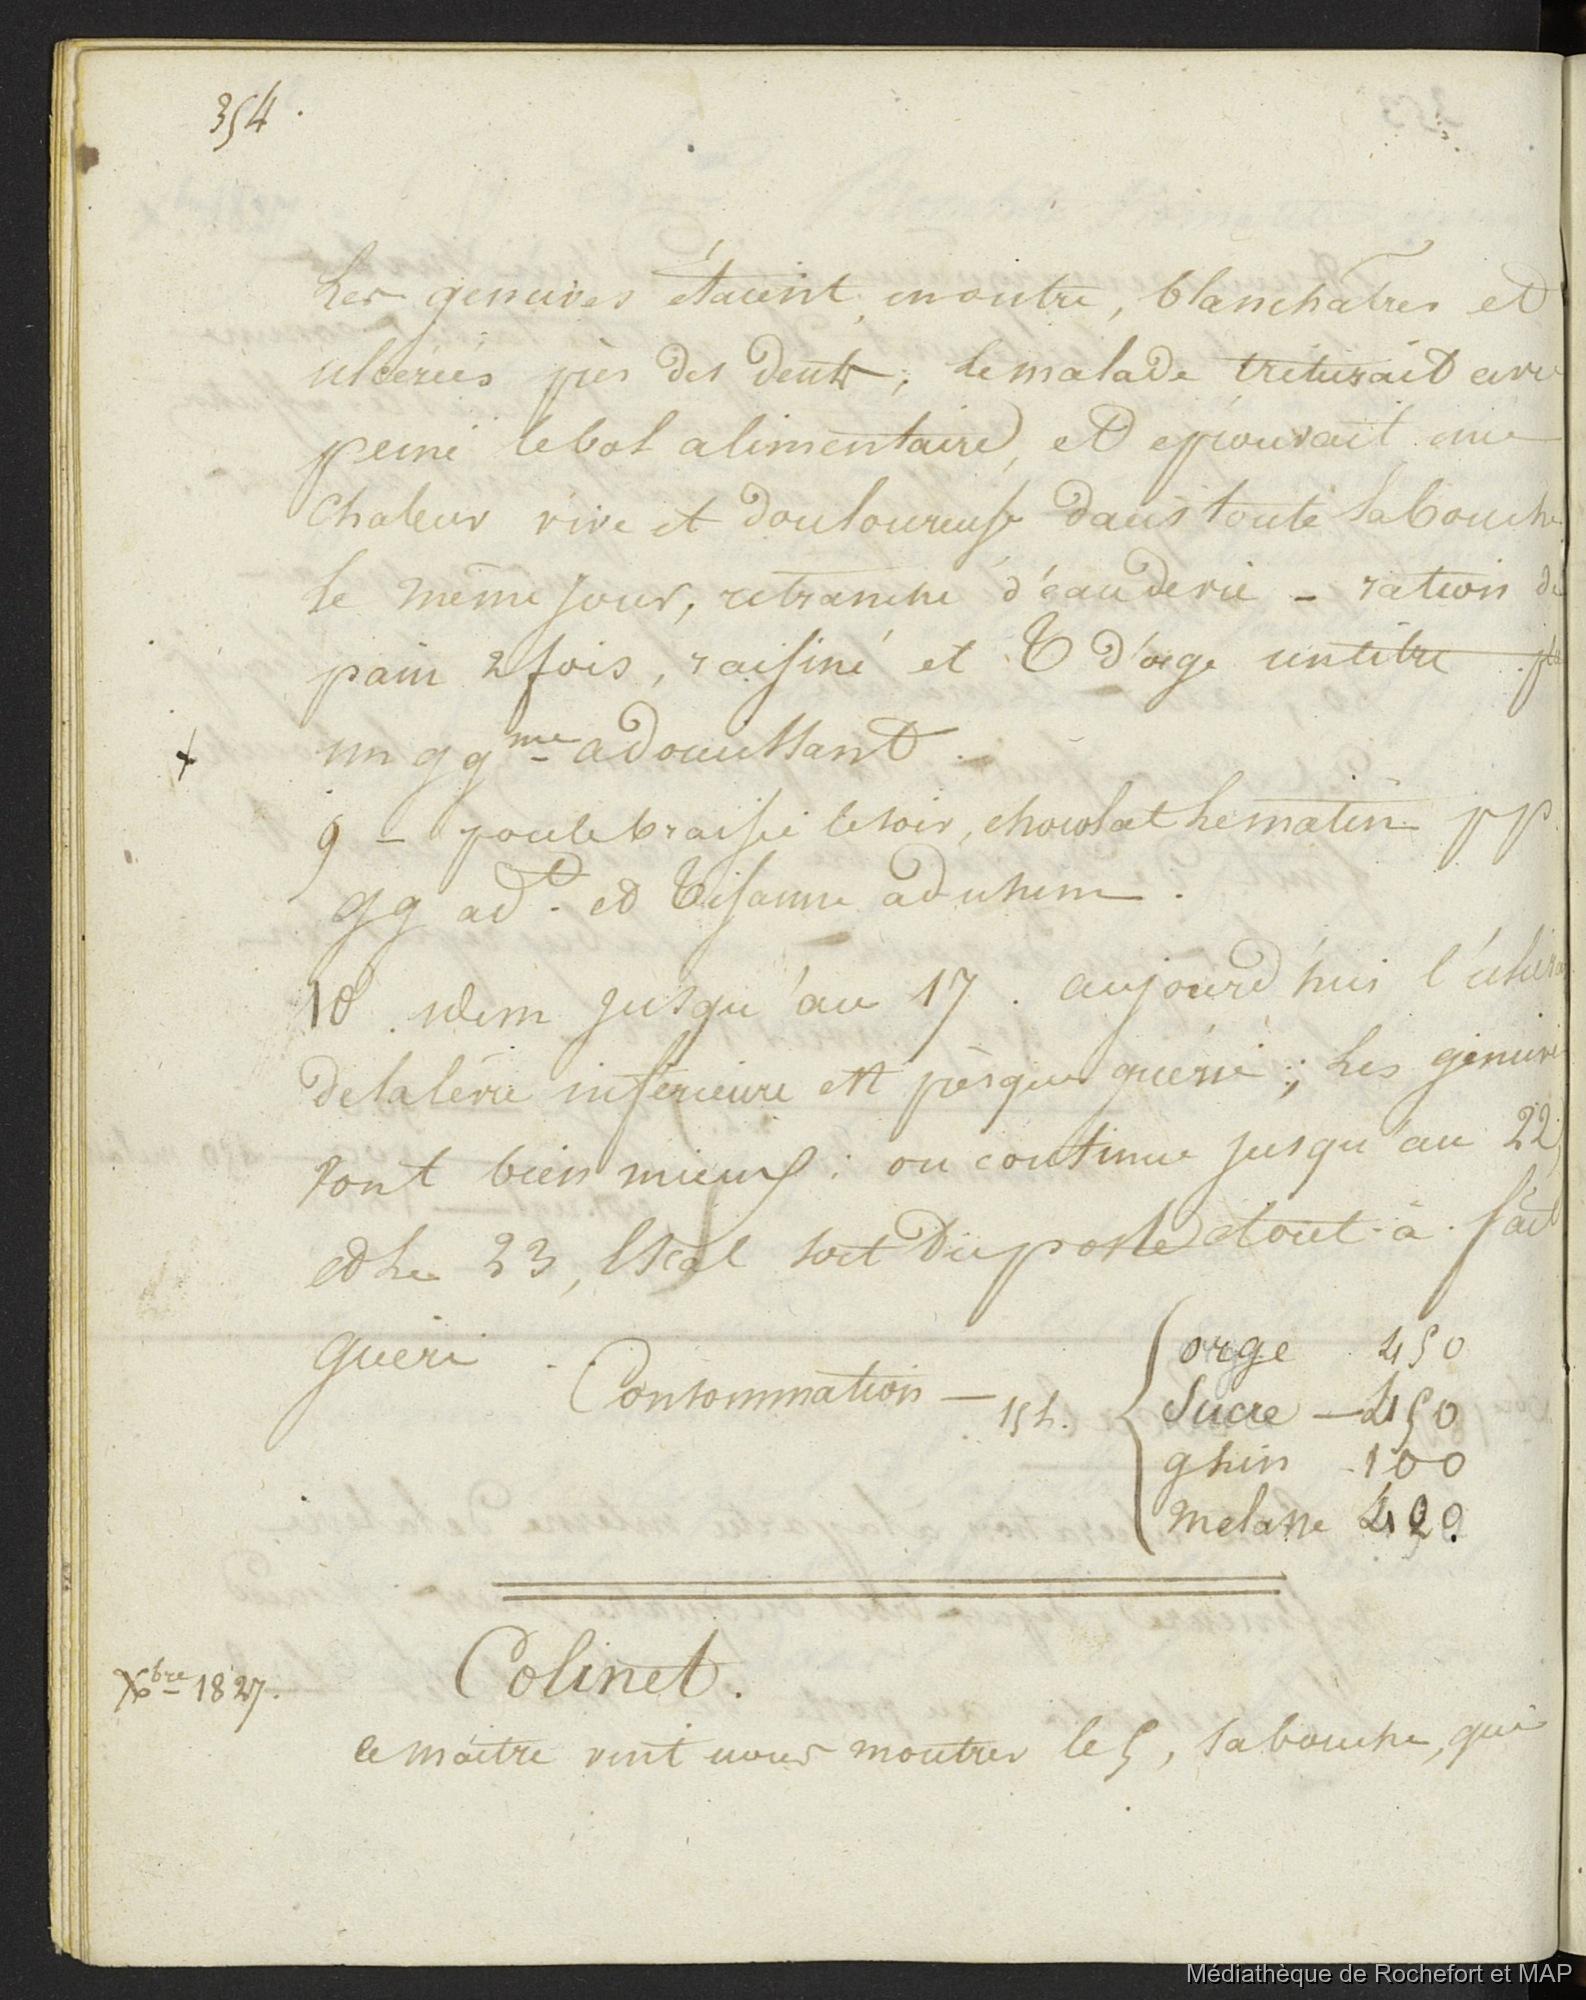 354.
Les gencives étaient, en outre, blanchâtres et
ulcérées près des dents; le malade triturait avec
peine le bol alimentaire, et eprouvait une
chaleur vive et douloureuse dans toute la bouche
le même jour, retranché d'eau de vie - ration de
pain 2 fois, raisiné et T d'orge un litre
un gg.me adoucissant.
9 - poule braisée le soir, chocolat le matin pp.
gg ad.t et Tisanne ad uhem.
10. idem jusqu'au 17. aujourd'hui l'ulcéra
de la lèvre inférieure est presque guérie; Les gencives
sont bien mieux: on continue jusqu'au 22,
et Le 23, sort du poste et tout-à-fait
guéri.
Consommation — 15 L.
orge 450
Sucre — 450
ghin 100
melasse 420.
Xbre 1827.
Colinet.
ce maître vint nous montrer le 5, sa bouche, qui
Médiathèque de Rochefort et MAP